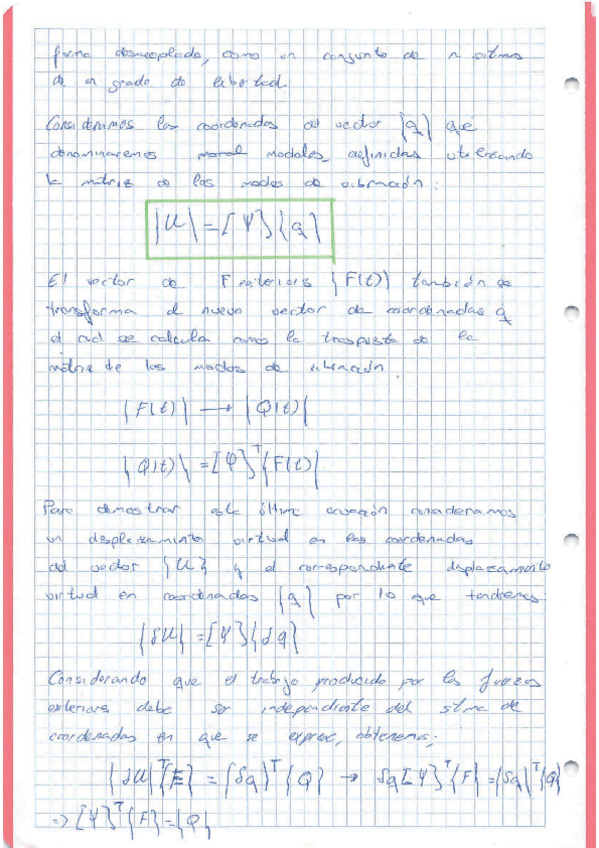 forma desacoplada, como un conjunto de n sitmas
de un grado de libertad.
Consideramos las coordenadas del vector {q} que
denominaremos modales, definidas utilizando
la matriz de los modos de vibración:
{U} = [Ψ]{q}
El vector de F exteriores {F(t)} también se
transforma al nuevo vector de coordenadas q
el cual se calcula como la traspuesta de la
matriz de los modos de vibración.
{F(t)} → {Q(t)}
{Q(t)} = [Ψ]^T {F(t)}
Para demostrar esta última ecuación consideramos
un desplazamiento virtual en las coordenadas
del vector {U} y el correspondiente desplazamiento
virtual en coordenadas {q} por lo que tendremos
{δU} = [Ψ]{δq}
Considerando que el trabajo producido por las fuerzas
exteriores debe ser independiente del stma de
coordenadas en que se exprese, obtenemos;
{δU}^T {F} = {δq}^T {Q} → δq [Ψ]^T {F} = {δq}^T {Q}
=> [Ψ]^T {F} = {Q}